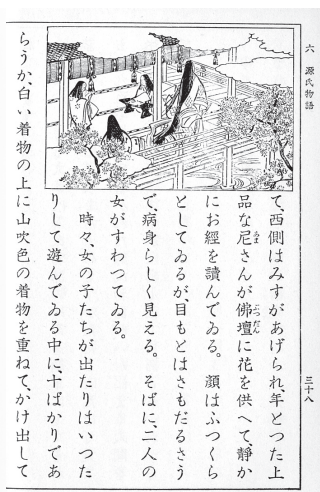 六 源氏物語
三十八
て、西側はみすがあげられ、年とつた上
品な尼さんが佛壇に花を供へて、靜か
にお經を讀んでゐる。顏はふつくら
としてゐるが、目もとはさもだるさう
で、病身らしく見える。そばに、二人の
女がすわつてゐる。
時々、女の子たちが出たりはいつた
りして遊んでゐる中に、十ばかりであ
らうか、白い着物の上に山吹色の着物を重ねて、かけ出して